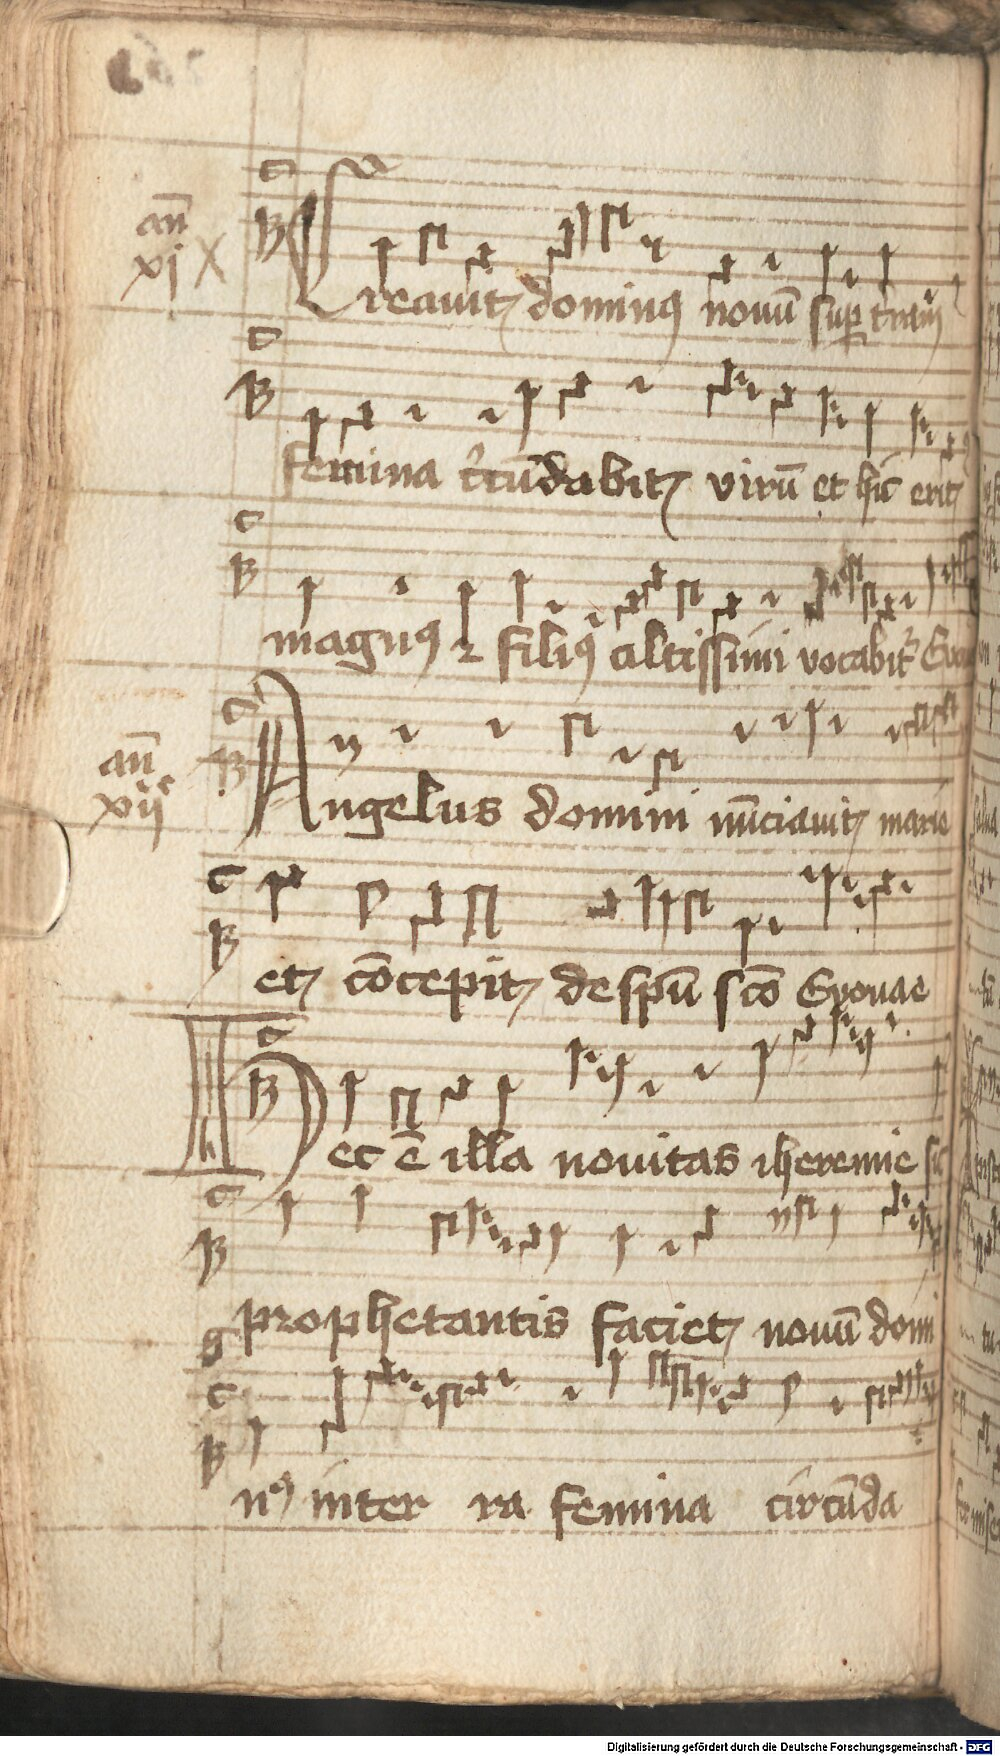 an̄
xj X
Creauit dominꝰ nouū suꝑ t̄ram
femina c̄cūdabit virū et hic erit
magnꝰ ⁊ filiꝰ altissimi vocabit᷑ Euo
an̄
xij
Angelus domini nūciauit marie
et cōcepit de spū scō Euouae
Hec ē illa nouitas iheremie sic
prophetantis faciet nouū domi
nꝰ in ter ra femina circūda
Digitalisierung gefördert durch die Deutsche Forschungsgemeinschaft - DFG